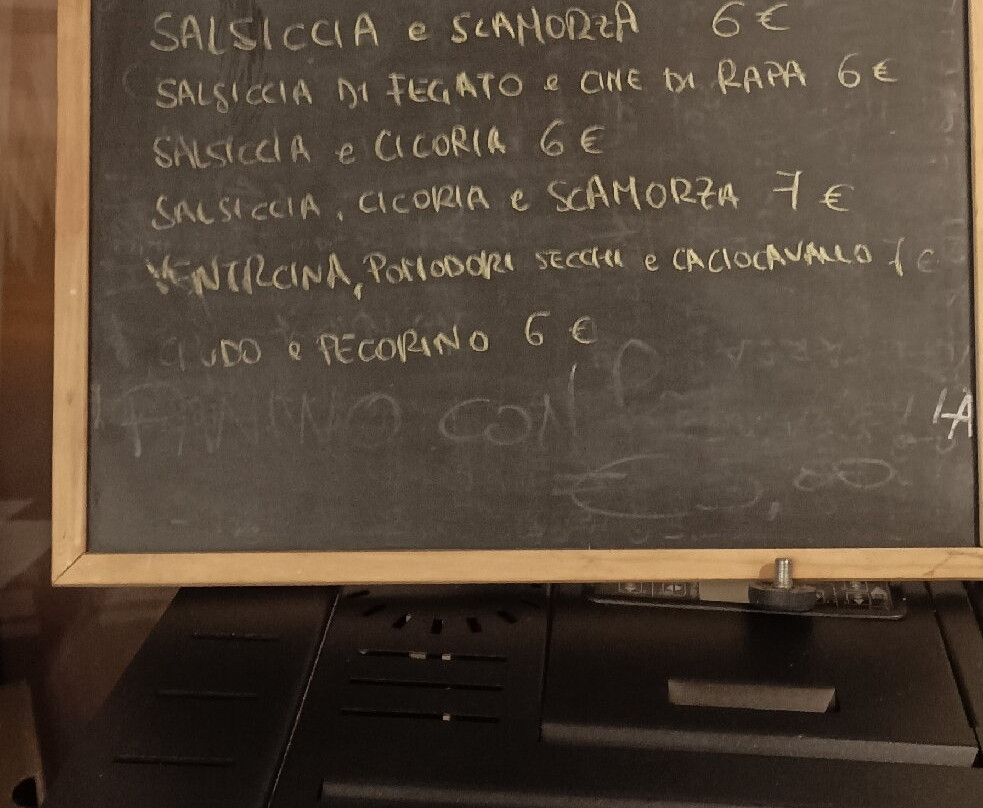 SALSICCIA e SCAMORZA 6 €
SALSICCIA DI FEGATO e CIME DI RAPA 6 €
SALSICCIA e CICORIA 6 €
SALSICCIA, CICORIA e SCAMORZA 7 €
VENTRICINA, POMODORI SECCHI e CACIOCAVALLO 7 €
CRUDO e PECORINO 6 €
PANINO CON P
€ 5,00